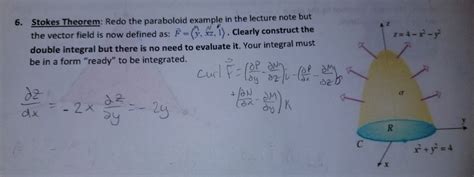 6. Stokes Theorem: Redo the paraboloid example in the lecture note but
the vector field is now defined as: F = (y, xz, 1). Clearly construct the
double integral but there is no need to evaluate it. Your integral must
be in a form "ready" to be integrated.
curl F = (∂P/∂y - ∂N/∂z)i - (∂P/∂x - ∂M/∂z)j
+ (∂N/∂x - ∂M/∂y)k
∂z/∂x = -2x ∂z/∂y = -2y
z
z = 4 - x² - y²
σ
R
y
C
x² + y² = 4
x